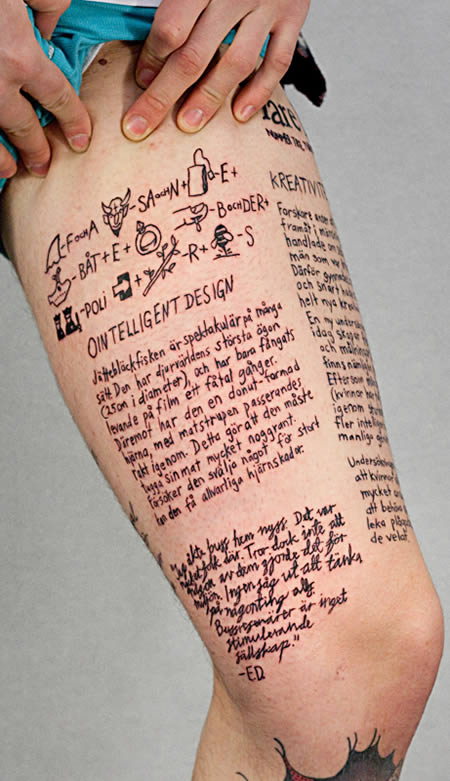 -F OCH A -SA OCH N+ -E+
-BÅT+E+ -BOCHDER+
-POLI + -R+ -S
OINTELLIGENT DESIGN
Jättebläckfisken är spektakulär på många
sätt. Den har djurvärldens största ögon
(25cm i diameter), och har bara fångats
levande på film ett fåtal gånger.
Däremot har den en donut-formad
hjärna, med matstrupen passerandes
rakt igenom. Detta gör att den måste
tugga sin mat mycket noggrant.
Försöker den svälja något för stort
kan den få allvarliga hjärnskador.
åkte buss hem nyss. Det var
folk där. Tror dock inte att
någon av dem gjorde det för
miljön. Ingen såg ut att tänka
på någonting alls.
Bussresenärer är inget
stimulerande
sällskap."
-ED
KREATIVITE
Forskare anser a
framåt i männi
handlade om
män som var
Därför gynnad
och snart ha
helt nya kro
En ny undersö
idag skapar
och målning
finns nämli
Eftersom m
(kvinnor har
igenom
fler intelli
manliga
Undersöknin
att kvinnor
mycket
att behöva
leka
de vekar.